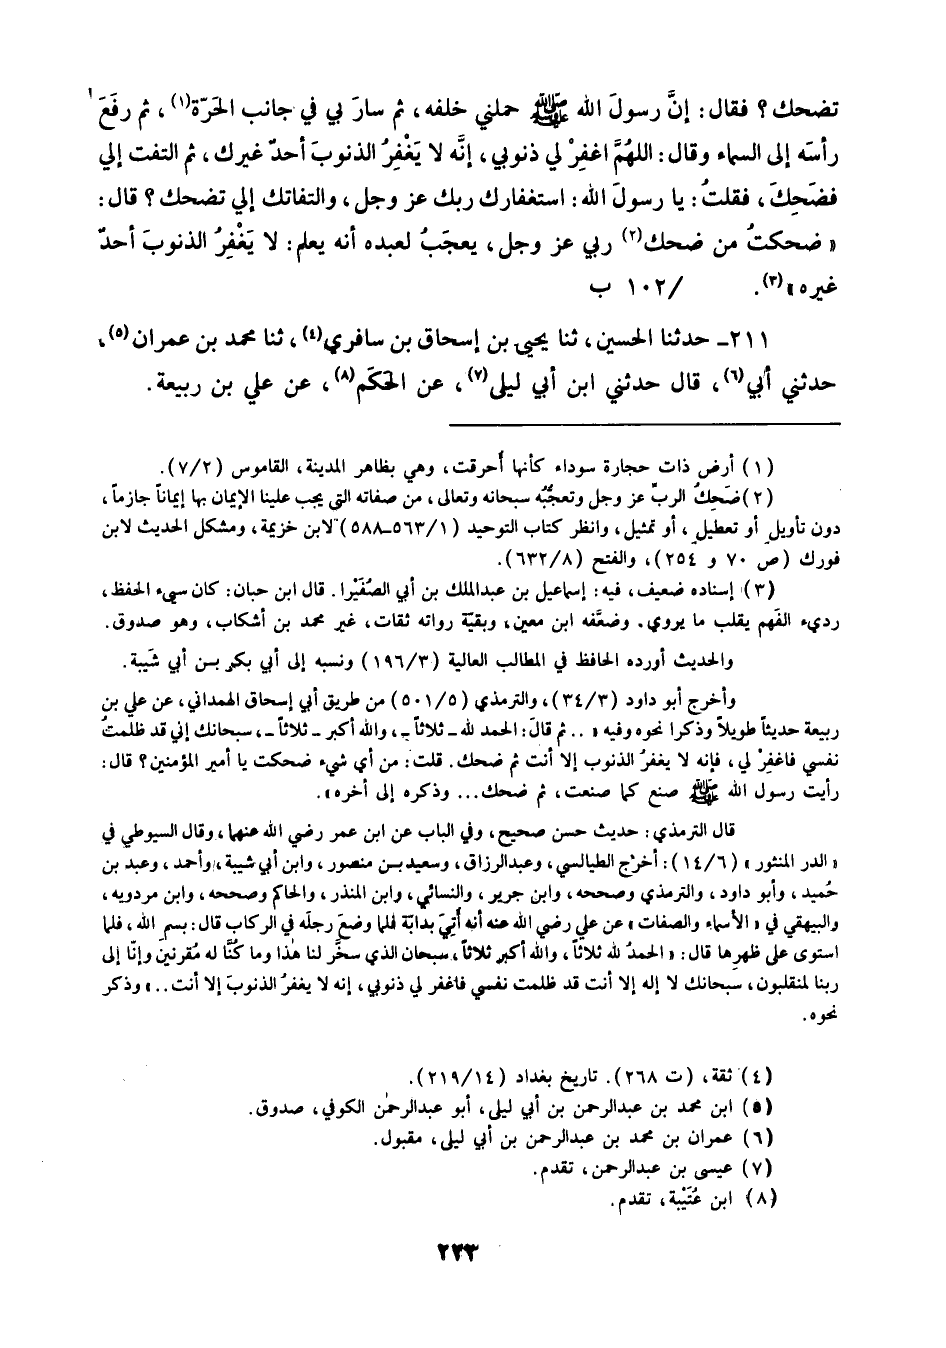 تضحك؟ فقال: إنَّ رسولَ الله ﷺ حملني خلفه، ثم سارَ بي في جانب الحَرّة(١)، ثم رفَعَ
رأسَه إلى السماء وقال: اللهُمَّ اغفِرْ لي ذنوبي، إنَّه لا يَغْفِرُ الذنوبَ أحدٌ غيرك، ثم التفت إلي
فضَحِكَ، فقلتُ: يا رسولَ الله: استغفارك ربك عز وجل، والتفاتك إلي تضحك؟ قال:
« ضحكتُ من ضحك(٢) ربي عز وجل، يعجَبُ لعبده أنه يعلم: لا يَغْفِرُ الذنوبَ أحدٌ
غيره»(٣). /١٠٢ ب
٢١١ـ حدثنا الحسين، ثنا يحيى بن إسحاق بن سافري(٤)، ثنا محمد بن عمران(٥)،
حدثني أبي(٦)، قال حدثني ابن أبي ليلى(٧)، عن الحَكَم(٨)، عن علي بن ربيعة.
(١) أرض ذات حجارة سوداء كأنها أُحرقت، وهي بظاهر المدينة، القاموس (٧/٢).
(٢) ضَحِكُ الربِّ عز وجل وتعجُّبُه سبحانه وتعالى، من صفاته التي يجب علينا الإيمان بها إيماناً جازماً،
دون تأويلٍ أو تعطيلٍ، أو تمثيل، وانظر كتاب التوحيد (٥٦٣/١ـ٥٨٨) لابن خزيمة، ومشكل الحديث لابن
فورك (ص ٧٠ و ٢٥٤)، والفتح (٦٣٢/٨).
(٣) إسناده ضعيف، فيه: إسماعيل بن عبدالملك بن أبي الصُفَيْرا. قال ابن حبان: كان سيىء الحفظ،
رديء الفَهم يقلب ما يروي. وضعَّفه ابن معين، وبقيّة رواته ثقات، غير محمد بن أشكاب، وهو صدوق.
والحديث أورده الحافظ في المطالب العالية (١٩٦/٣) ونسبه إلى أبي بكر بـن أبي شَيبة.
وأخرج أبو داود (٣٤/٣)، والترمذي (٥٠١/٥) من طريق أبي إسحاق الهمداني، عن علي بن
ربيعة حديثاً طويلاً وذكرا نحوه وفيه « .. ثم قالَ: الحمد لله ـ ثلاثاً ـ، والله أكبر ـ ثلاثاً ـ، سبحانك إني قد ظلمتُ
نفسي فاغفِرْ لي، فإنه لا يغفرُ الذنوب إلا أنت ثم ضحك. قلت: من أي شيء ضحكت يا أمير المؤمنين؟ قال:
رأيت رسول الله ﷺ صنع كما صنعت، ثم ضحك... وذكره إلى أخره».
قال الترمذي: حديث حسن صحيح، وفي الباب عن ابن عمر رضي الله عنهما، وقال السيوطي في
« الدر المنثور » (١٤/٦): أخرج الطيالسي، وعبدالرزاق، وسعيد بـن منصور، وابن أبي شيبة، وأحمد، وعبد بن
حُميد، وأبو داود، والترمذي وصححه، وابن جرير، والنسائي، وابن المنذر، والحاكم وصححه، وابن مردويه،
والبيهقي في « الأسماء والصفات » عن علي رضي الله عنه أنه أُتِيَ بدابّة فلما وضعَ رجلَه في الركاب قال: بسم الله، فلما
استوى على ظهرها قال: « الحمدُ لله ثلاثاً، والله أكبر ثلاثاً، سبحان الذي سخَّر لنا هذا وما كُنَّا له مُقرنين وإنّا إلى
ربنا لمنقلبون، سبحانك لا إله إلا أنت قد ظلمت نفسي فاغفر لي ذنوبي، إنه لا يغفرُ الذنوبَ إلا أنت..» وذكر
نحوه.
(٤) ثقة، (ت ٢٦٨). تاريخ بغداد (٢١٩/١٤).
(٥) ابن محمد بن عبدالرحمن بن أبي ليلى، أبو عبدالرحمٰن الكوفي، صدوق.
(٦) عمران بن محمد بن عبدالرحمن بن أبي ليلى، مقبول.
(٧) عيسى بن عبدالرحمن، تقدم.
(٨) ابن عُتَيْبة، تقدم.
٢٢٣